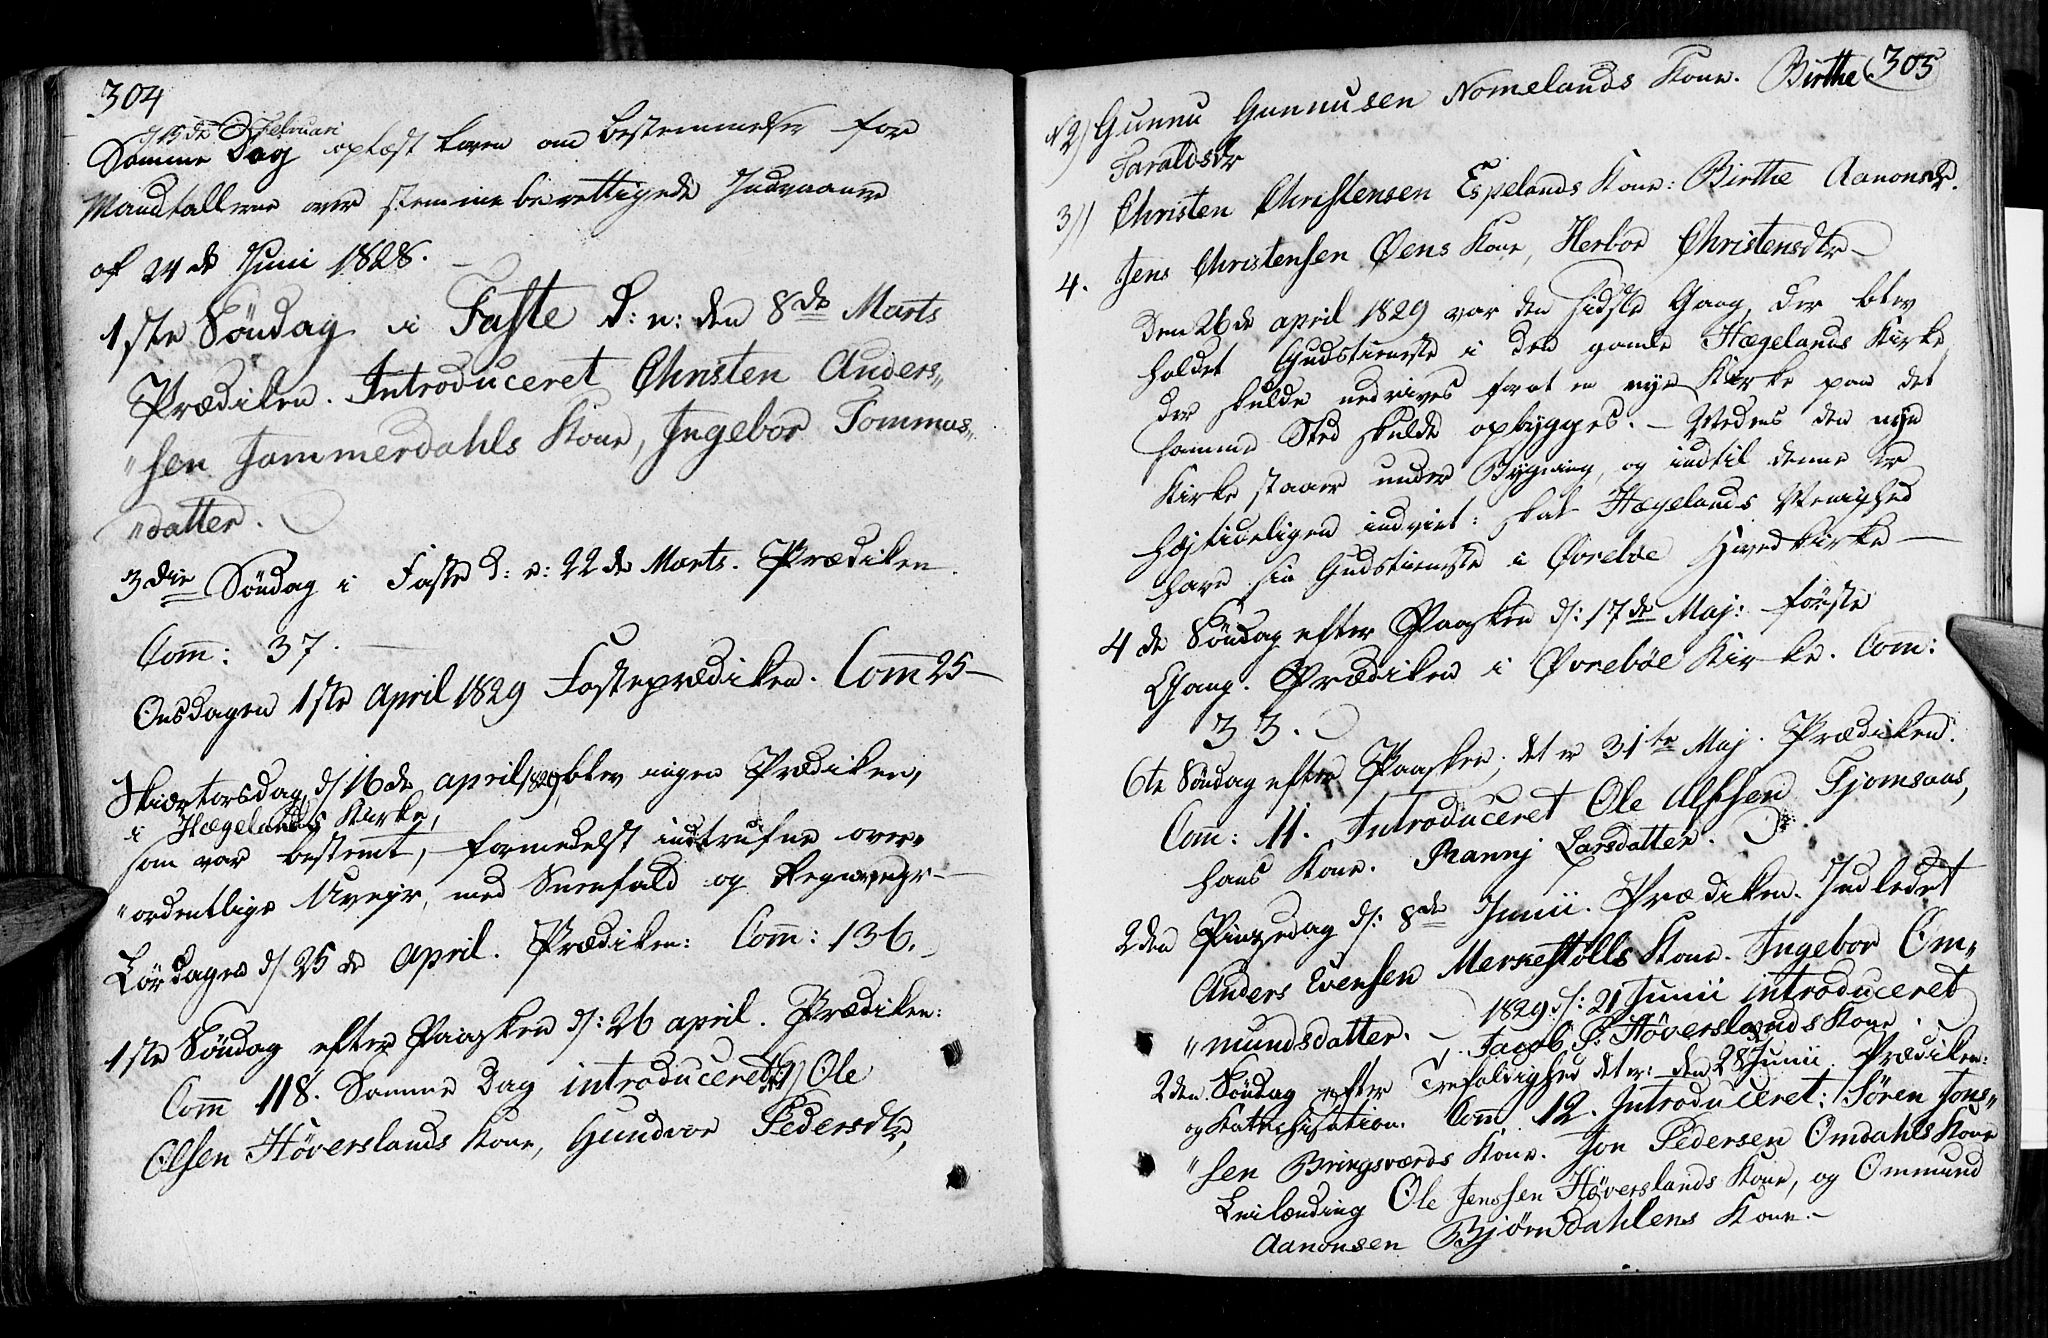 304
d 15de Februari
Samme Dag oplæst Loven om bestemmelser for
Mandtallerne over stemmeberettigede Indvaanere
af 24de Juni 1828. —
1ste Söndag i Faste d: e: den 8de Marts
Prædiken. Introduceret Christen Anders„
„sen Jammerdahls Kone, Ingebor Tommas„
„datter.
3die Söndag i Faste d: e: 22de Marts. Prædiken.
Com̄: 37. —
Onsdagen 1ste April 1829 Fasteprædiken. Com̄ 25 —
Skiærtorsdag, d/ 16de April 1829, blev ingen Prædiken,
i Hægelands Kirke,
som var bestemt, formedelst indtrufne over„
„ordentlige Uveyr, med Sneefald og Regnveyr —
Lördagen d/ 25de April. Prædiken: Com̄: 136.
1ste Söndag efter Paasken d/: 26 april. Prædiken:
Com̄ 118. Samme Dag introduceret 1) Ole
Olsen Höverslands Kone, Gundvor Pedersdtr,
305
2) Gunnu Gunnusen Nomelands Kone. Birthe
Taraldsdr
3) Christen Christensen Espelands Kone: Birthe Aanonsdr.
4. Jens Christensen Øens Kone, Herbor Christensdtr —
Den 26de april 1829 var den sidste Gang, der blev
holdet Gudstieneste i den gamle Hægelands Kirke,
der skulde nedrives forat en nye Kirke paa det
samme Sted skulde opbygges. — Medens den nye
Kirke staaer under Bygning, og indtil denne er
højtideligen indviet: skal Hægelands Menighed
have sin Gudstieneste i Øvreböe Hvedkirke —
4de Söndag efter Paasken d/: 17de Maj: förste
Gang. Prædiken i Øvreböe Kirke. Com:
33.
6te Söndag efter Paasken, det er 31te Maj. Prædiken.
Com̄: 11. Introduceret Ole Alfsen Tjomsaas,
hans Kone. Rannj Larsdatter.
2den Pinzedag d/: 8de Junii. Prædiken. Indledet
Anders Evensen Merkestölls Kone. Ingebor Om„
„mundsdatter. — 1829. d/: 21 Junii introduceret
Jacob P. Höverslands Kone.
2den Söndag efter Trefoldighed det er: den 28 Junii. Prædiken:
og Katechisation. Com̄ 12. Introduceret: Sören Jons„
„sen Bringsværds Kone. Jon Pedersen Omdahls Kone
Leilænding Ole Jenssen Höverslands Kone, og Ommund
Aanonsen Bjørndahlens Kone. —